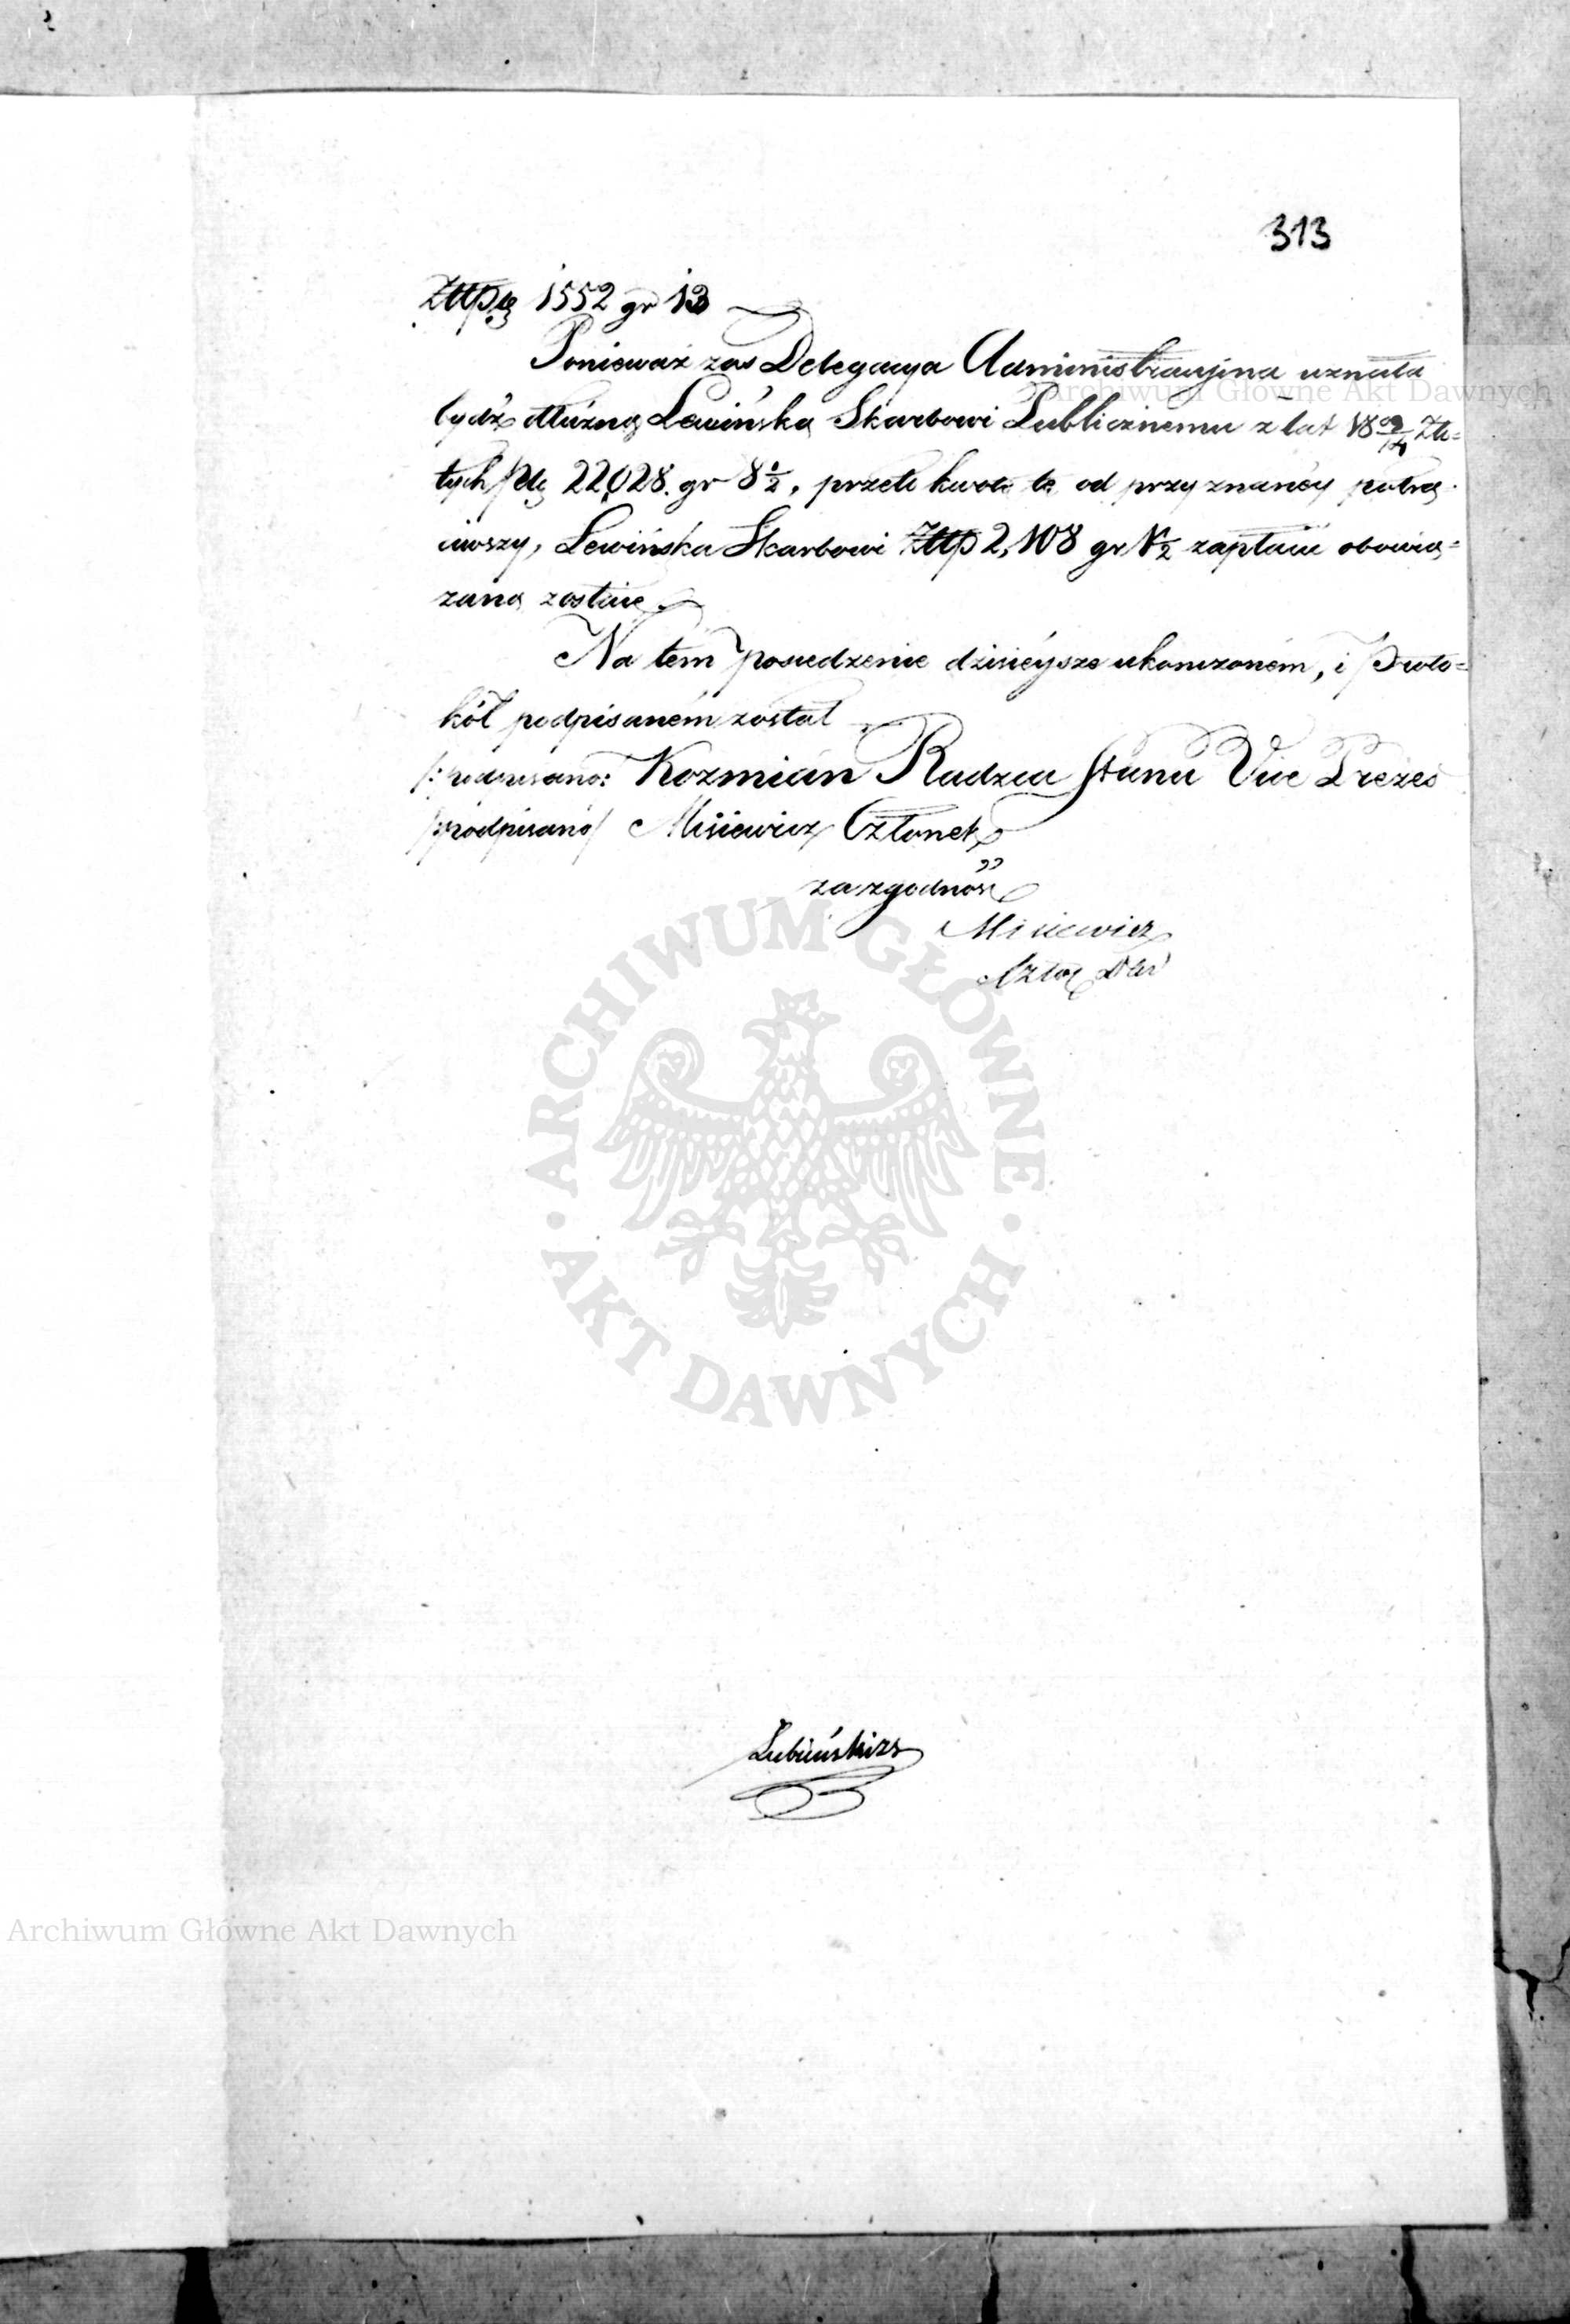 313
Złłp. 1552 gr 13
Ponieważ zas Delegacya Administracyjna uznała
bydź dłużną Lewińską Skarbowi Publicznemu z lat 18 09/14 Zło=
tych Pol. 22,028. gr 8 1/2, przeto kwotę tę od przyznanéy potrą=
ciwszy, Lewińska Skarbowi Złłp 2,108 gr 1/2 zapłacić obowią=
zaną zostaie.
Na tém posiedzenie dzisieysze ukonczoném, i Proto=
kół podpisaném został
/:podpisano: Kozmian Radzca Stanu Vice Prezes
/:podpisano/ Misiewicz Członek
za zgodność
Misiewicz
Archiwum Główne Akt Dawnych
ARCHIWUM GŁÓWNE · AKT DAWNYCH ·
Lubieński
Archiwum Główne Akt Dawnych